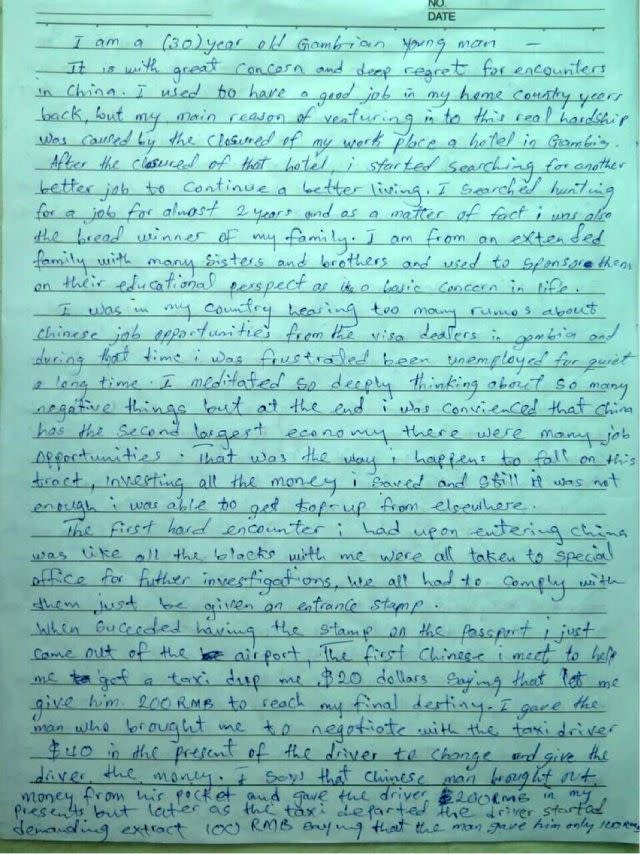 NO.
DATE
I am a (30) year old Gambian young man —
It is with great concern and deep regret for encounters
in China. I used to have a good job in my home country years
back, but my main reason of venturing in to this real hardship
was caused by the closured of my work place a hotel in Gambia.
After the closured of that hotel, i started searching for another
better job to continue a better living. I searched hunting
for a job for almost 2 years and as a matter of fact i was also
the bread winner of my family. I am from an extended
family with many sisters and brothers and used to sponsore them
on their educational perspect as a basic concern in life.
I was in my country hearing too many rumos about
chinese job opportunities from the visa dealers in gambia and
during that time i was frustraded been unemployed for quiet
a long time. I meditated so deeply thinking about so many
negative things but at the end i was convienced that China
has the second largest economy there were many job
opportunities. That was the way i happens to fall on this
tract, investing all the money i saved and still it was not
enough i was able to get top-up from elsewhere.
The first hard encounter i had upon entering china
was like all the blacks with me were all taken to special
office for futher investigations, we all had to comply with
them just be given an entrance stamp.
When succeeded having the stamp on the passport i just
came out of the airport, The first Chinese i meet to help
me get a taxi drep me $20 dollars saying that let me
give him 200RMB to reach my final destiny. I gave the
man who brought me to negotiate with the taxi driver
$40 in the present of the driver to change and give the
driver the money. I says that chinese man brought out
money from his pocket and gave the driver 200RMB in my
presents but later as the taxi departed the driver started
demanding extract 100 RMB saying that the man gave him only 100RMB